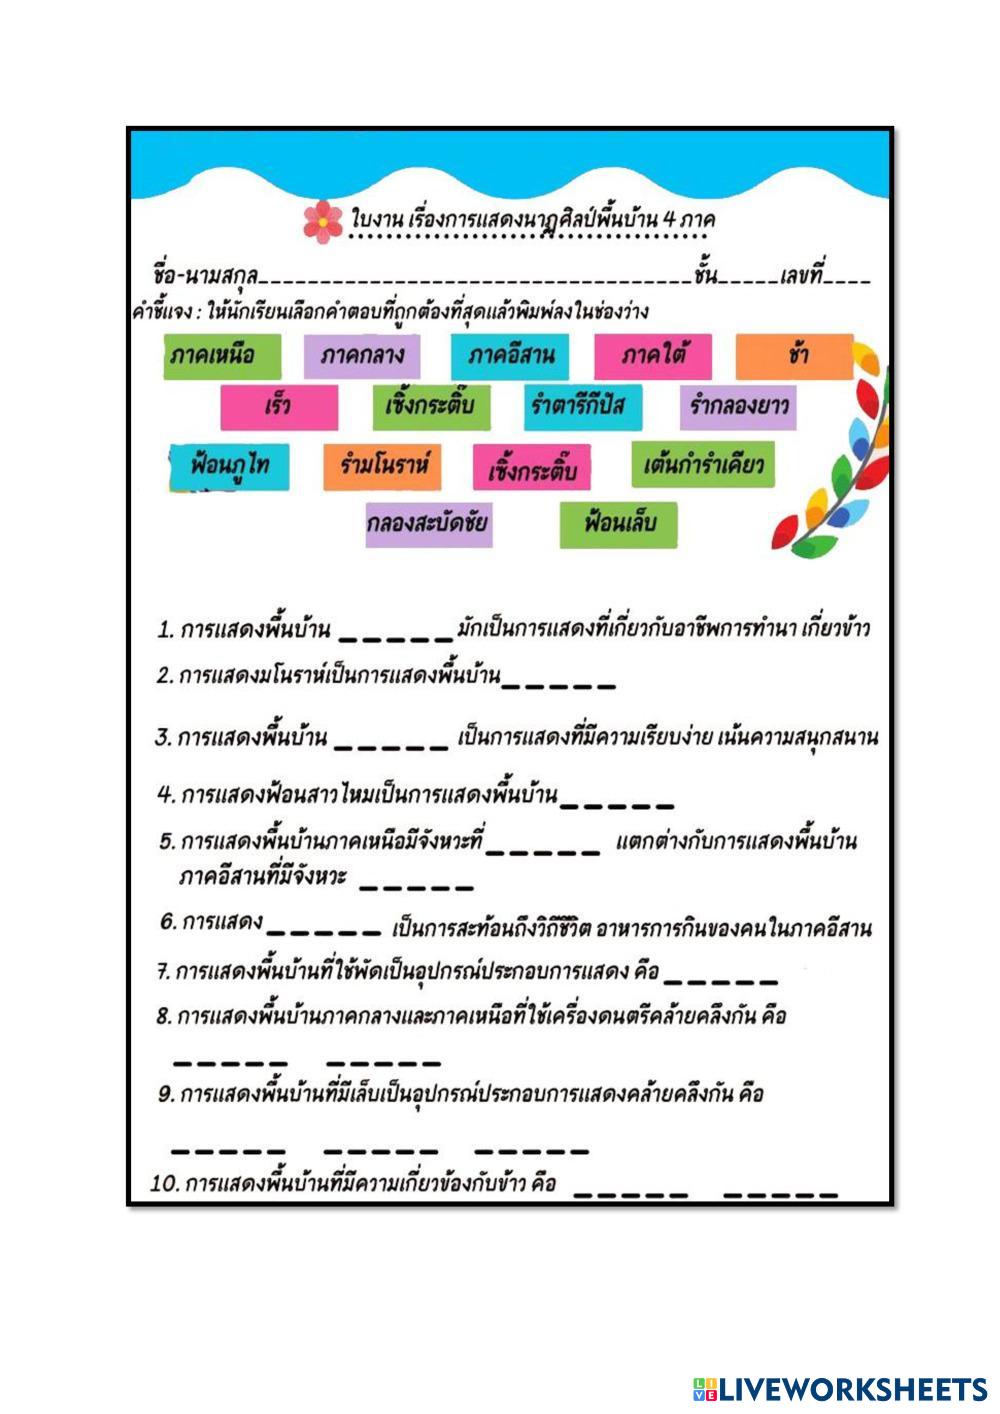 ใบงาน เรื่องการแสดงนาฏศิลป์พื้นบ้าน 4 ภาค
ชื่อ-นามสกุล___________________________________ชั้น_____เลขที่____
คำชี้แจง : ให้นักเรียนเลือกคำตอบที่ถูกต้องที่สุดแล้วพิมพ์ลงในช่องว่าง
ภาคเหนือ ภาคกลาง ภาคอีสาน ภาคใต้ ช้า
เร็ว เซิ้งกระติ๊บ รำตารีกีปัส รำกลองยาว
ฟ้อนภูไท รำมโนราห์ เซิ้งกระติ๊บ เต้นกำรำเคียว
กลองสะบัดชัย ฟ้อนเล็บ
1. การแสดงพื้นบ้าน _____ มักเป็นการแสดงที่เกี่ยวกับอาชีพการทำนา เกี่ยวข้าว
2. การแสดงมโนราห์เป็นการแสดงพื้นบ้าน_____
3. การแสดงพื้นบ้าน _____ เป็นการแสดงที่มีความเรียบง่าย เน้นความสนุกสนาน
4. การแสดงฟ้อนสาวไหมเป็นการแสดงพื้นบ้าน_____
5. การแสดงพื้นบ้านภาคเหนือมีจังหวะที่_____ แตกต่างกับการแสดงพื้นบ้าน
ภาคอีสานที่มีจังหวะ _____
6. การแสดง_____ เป็นการสะท้อนถึงวิถีชีวิต อาหารการกินของคนในภาคอีสาน
7. การแสดงพื้นบ้านที่ใช้พัดเป็นอุปกรณ์ประกอบการแสดง คือ _____
8. การแสดงพื้นบ้านภาคกลางและภาคเหนือที่ใช้เครื่องดนตรีคล้ายคลึงกัน คือ
_____ _____
9. การแสดงพื้นบ้านที่มีเล็บเป็นอุปกรณ์ประกอบการแสดงคล้ายคลึงกัน คือ
_____ _____ _____
10. การแสดงพื้นบ้านที่มีความเกี่ยวข้องกับข้าว คือ _____ _____
LIVE LIVEWORKSHEETS